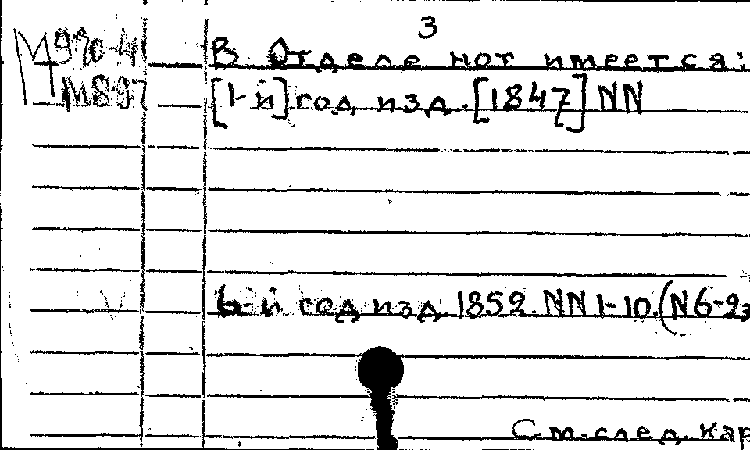 3
М 970-4
В Отделе нот имеется:
М 897
[1-й] год изд. [1847] NN
6-й год изд. 1852. NN 1-10. (N 6-2
См. след. кар